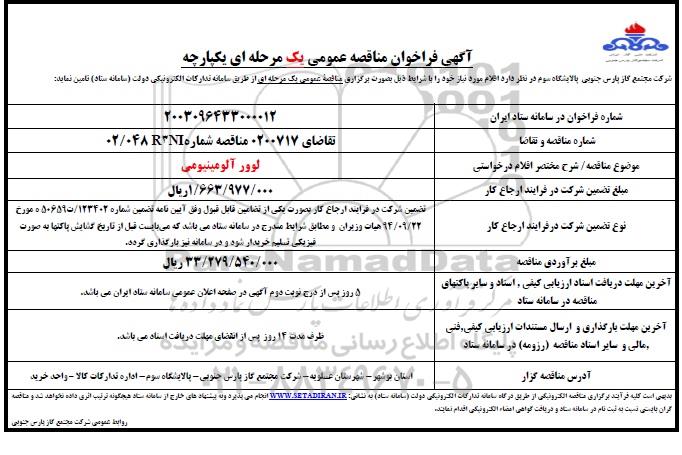 آگهی فراخوان مناقصه عمومی یک مرحله ای یکپارچه
شرکت مجتمع گاز پارس جنوبی پالایشگاه سوم در نظر دارد اقلام مورد نیاز خود را با شرایط ذیل بصورت برگزاری مناقصه عمومی یک مرحله ای از طریق سامانه تدارکات الکترونیکی دولت (سامانه ستاد) تامین نماید:
شماره فراخوان در سامانه ستاد ایران
۲۰۰۳۰۹۶۴۳۳۰۰۰۰۱۲
شماره مناقصه و تقاضا
تقاضای ۰۲۰۰۷۱۷ مناقصه شماره R۳NI ۰۲/۰۴۸
موضوع مناقصه/ شرح مختصر اقلام درخواستی
لوور آلومینیومی
مبلغ تضمین شرکت در فرایند ارجاع کار
۱/۶۶۳/۹۷۷/۰۰۰ریال
نوع تضمین شرکت درفرایند ارجاع کار
تضمین شرکت در فرایند ارجاع کار بصورت یکی از تضامین قابل قبول وفق آیین نامه تضمین شماره ۱۲۳۴۰۲/ت۵۰۶۵۹ ه مورخ
۹۴/۰۹/۲۲ هیات وزیران و مطابق شرایط مندرج در سامانه ستاد می باشد که می‌بایست قبل از تاریخ گشایش پاکتها به صورت
فیزیکی تسلیم خریدار شود و در سامانه نیز بارگذاری گردد.
مبلغ برآوردی مناقصه
۳۳/۲۷۹/۵۴۰/۰۰۰ ریال
آخرین مهلت دریافت اسناد ارزیابی کیفی , اسناد و سایر پاکتهای
مناقصه در سامانه ستاد
۵ روز پس از درج نوبت دوم آگهی در صفحه اعلان عمومی سامانه ستاد ایران می باشد.
آخرین مهلت بارگذاری و ارسال مستندات ارزیابی کیفی,فنی
,مالی و سایر اسناد مناقصه (رزومه) در سامانه ستاد
ظرف مدت ۱۴ روز پس از انقضای مهلت دریافت اسناد می باشد.
آدرس مناقصه گزار
استان بوشهر – شهرستان عسلویه – شرکت مجتمع گاز پارس جنوبی– پالایشگاه سوم– اداره تدارکات کالا –واحد خرید
بدیهی است کلیه فرآیند برگزاری مناقصه الکترونیکی از طریق درگاه سامانه تدارکات الکترونیکی دولت (سامانه ستاد) به نشانی: WWW.SETADIRAN.IR انجام می پذیرد و به پیشنهاد های خارج از سامانه ستاد هیچگونه ترتیب اثری داده نخواهد شد و مناقصه
گران بایستی نسبت به ثبت نام در سامانه ستاد و دریافت گواهی امضاء الکترونیکی اقدام نمایند.
روابط عمومی شرکت مجتمع گاز پارس جنوبی
ParsNamadData
مرکز فرآوری اطلاعات پارس نماد داده ها
پایگاه اطلاع رسانی مناقصه و مزایده
۰۲۱-۸۸۳۴۹۶۷۰-۵